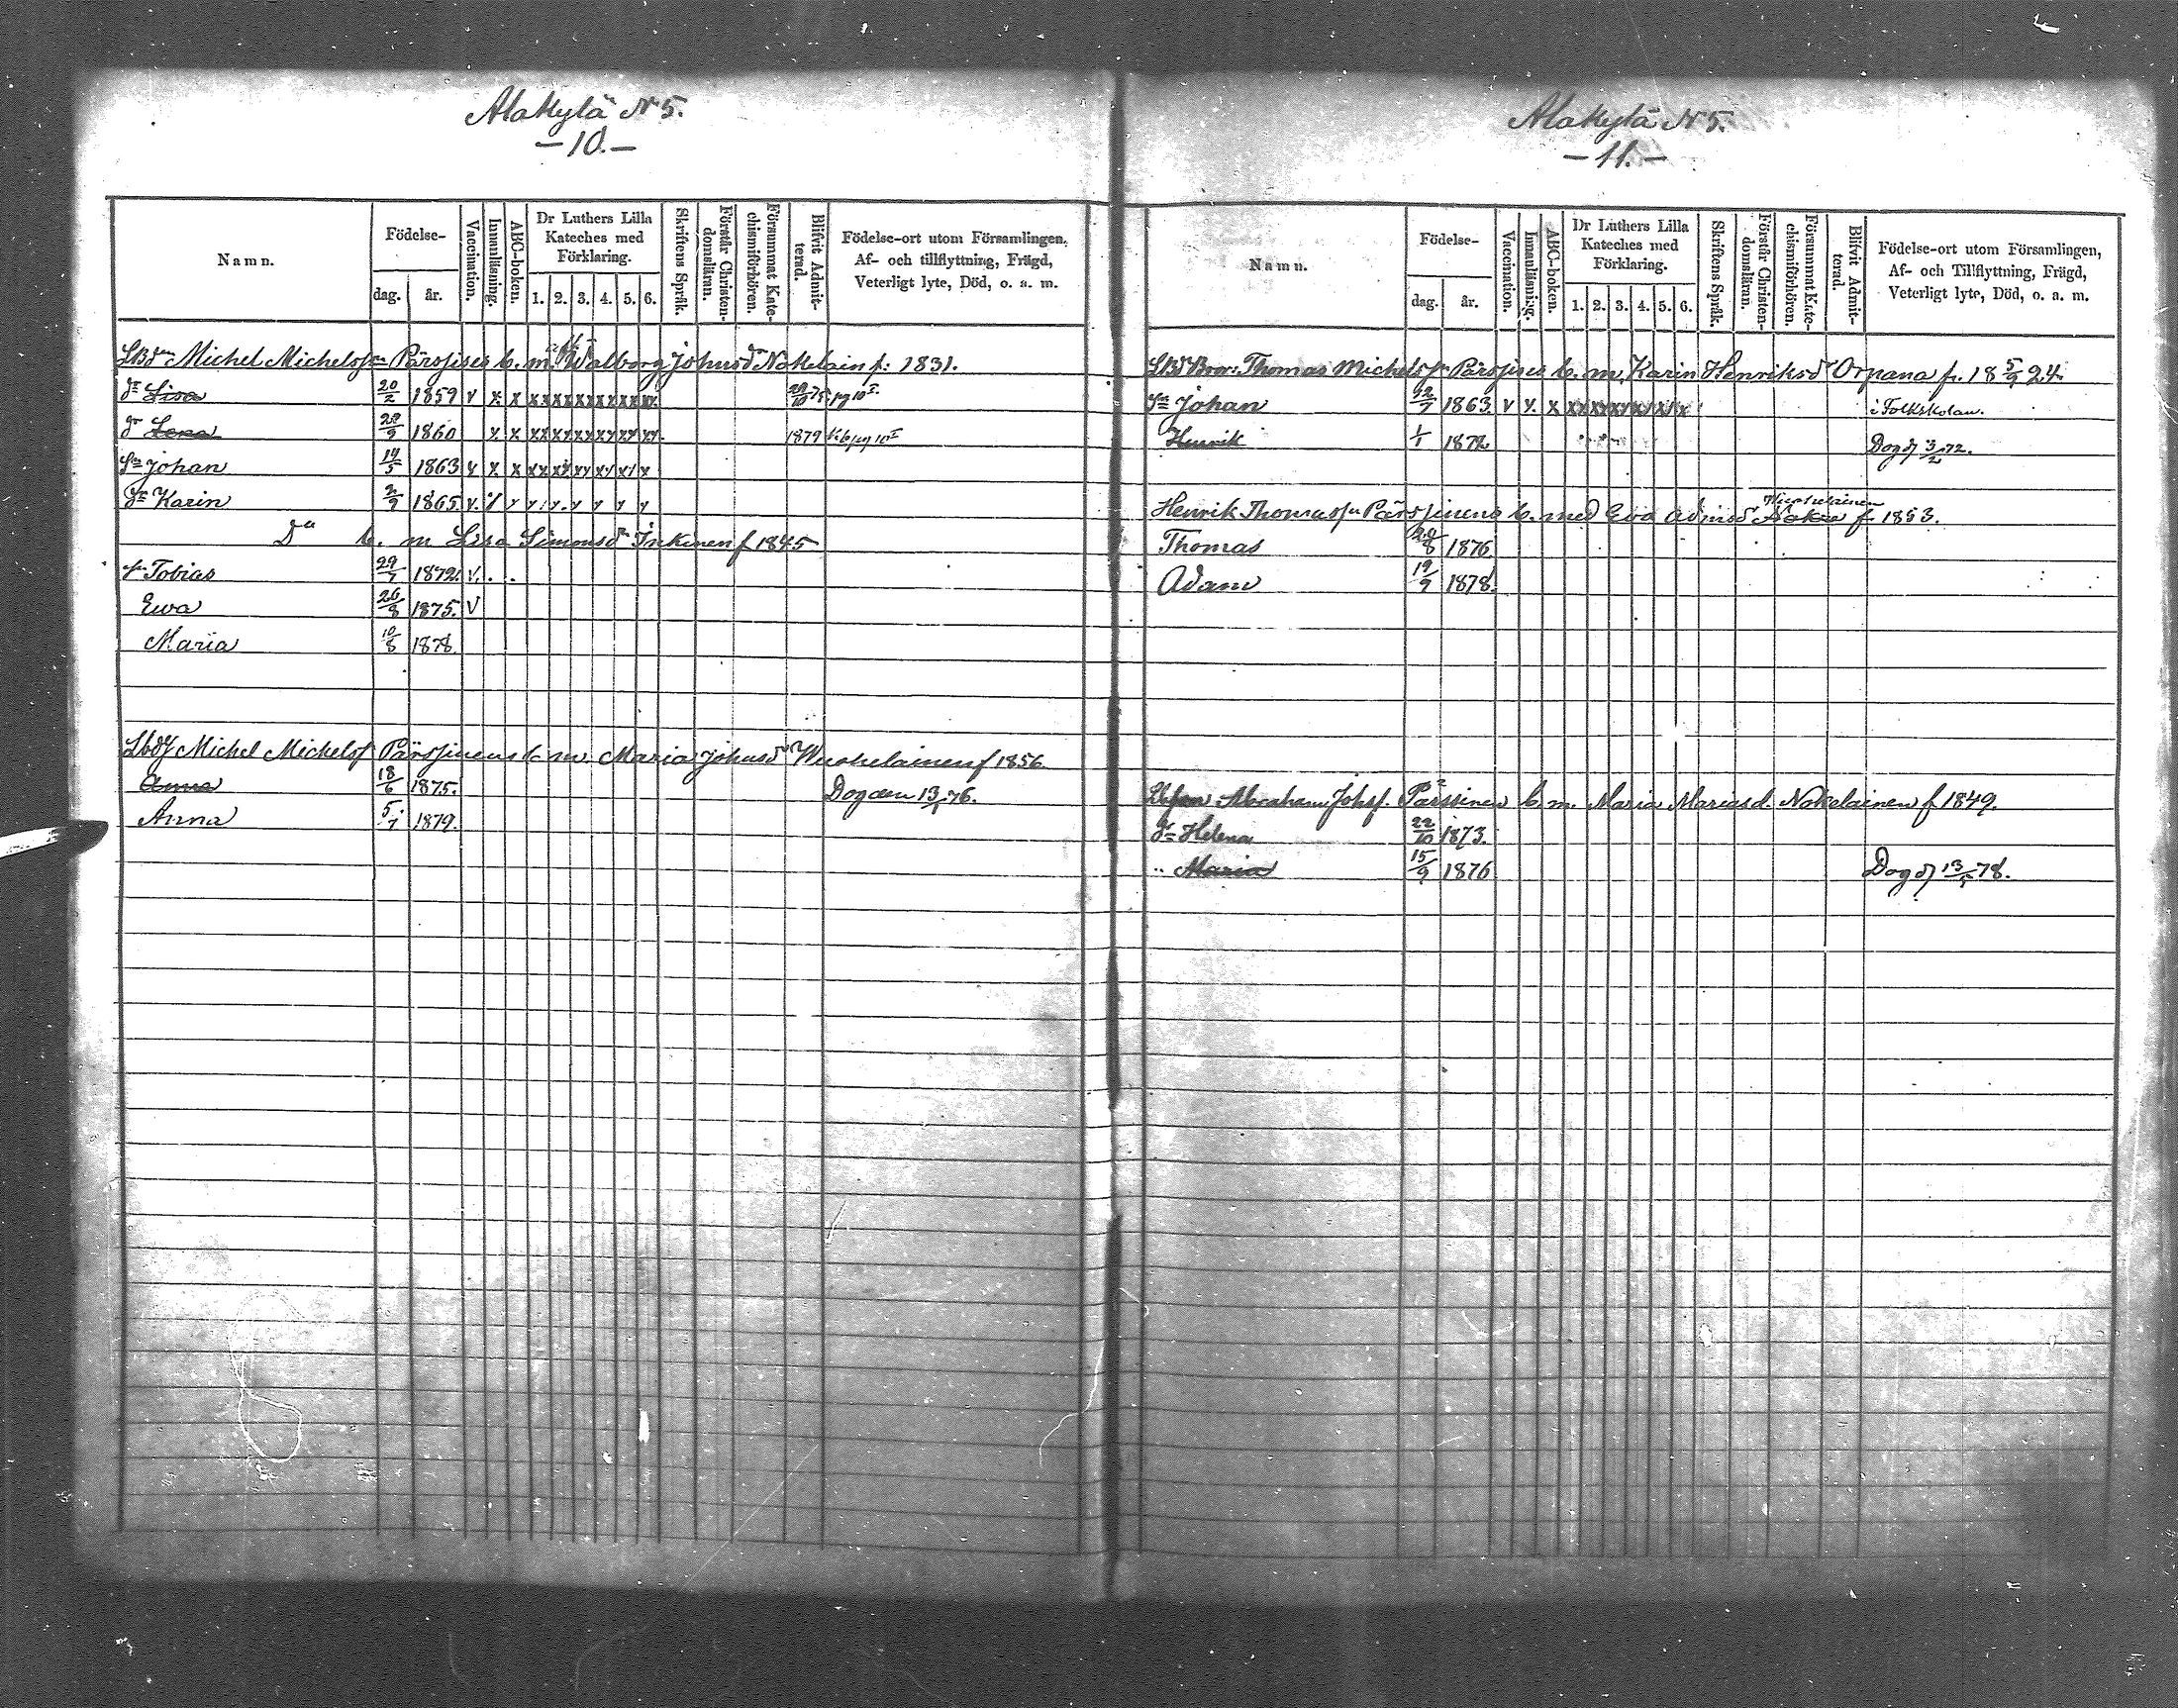 Alakylä N 5.
— 10. —
Namn.
Födelse-
dag.
år.
Vaccination.
Innanläsning.
ABC-boken.
Dr Luthers Lilla Kateches med Förklaring.
1. 2. 3. 4. 5. 6.
Skriftens Språk.
Förstår Christendomsläran.
Försummat Katechismiförhören.
Blifvit Admitterad.
Födelse-ort utom Församlingen,
Af- och tillflyttning, Frägd,
Veterligt lyte, Död, o. a. m.
Michel Michels Pärssises h. m. Walborg Johansdr Nokelain f: 1831.
dr Lisa 20/2 1859 v x x xx xx xx xx xx xx 75 pg 10
dr Lena 29/9 1860 x x xx xx xx xx xx xx 1879 pg 10
Sn Johan 14/5 1863 v x x xx xx xy xy x/ x
dr Karin 2/9 1865. v.
Da h. m Lisa Simonsdr Inkinen f 1845
Tobias 29/7 1872. v.
Ewa 26/8 1875. v
Maria 10/8 1878
Michel Michels Pärssinens h. m. Maria Johnsdr f 1856.
Anna 18/6 1875. Dog den 13/ 76.
Anna 5/7 1879.
Alakylä N 5.
— 11. —
Namn.
Födelse-
dag.
år.
Vaccination.
Innanläsning.
ABC-boken.
Dr Luthers Lilla Kateches med Förklaring.
1. 2. 3. 4. 5. 6.
Skriftens Språk.
Förstår Christendomsläran.
Försummat Katechismiförhören.
Blifvit Admitterad.
Födelse-ort utom Församlingen,
Af- och Tillflyttning, Frägd,
Veterligt lyte, Död, o. a. m.
Bror: Thomas Michels Pärssises h. m. Karin Henriksdr Orpana f. 18 5/9 24.
Sn Johan 1863 v y. x xx xx xx i Folkskolan.
Henrik 1/1 1872 Dog d 3/2 72.
Henrik Thomas Pärssinens h. med Eva Admsd f 1853.
Thomas 20/8 1876
Adam 19/9 1878.
Abraham Johs. Pärssinen h. m. Maria Mariasd. Nokelainen f 1849.
dr Helena 22/10 1873.
" Maria 15/9 1876 Dog d 13/5 78.